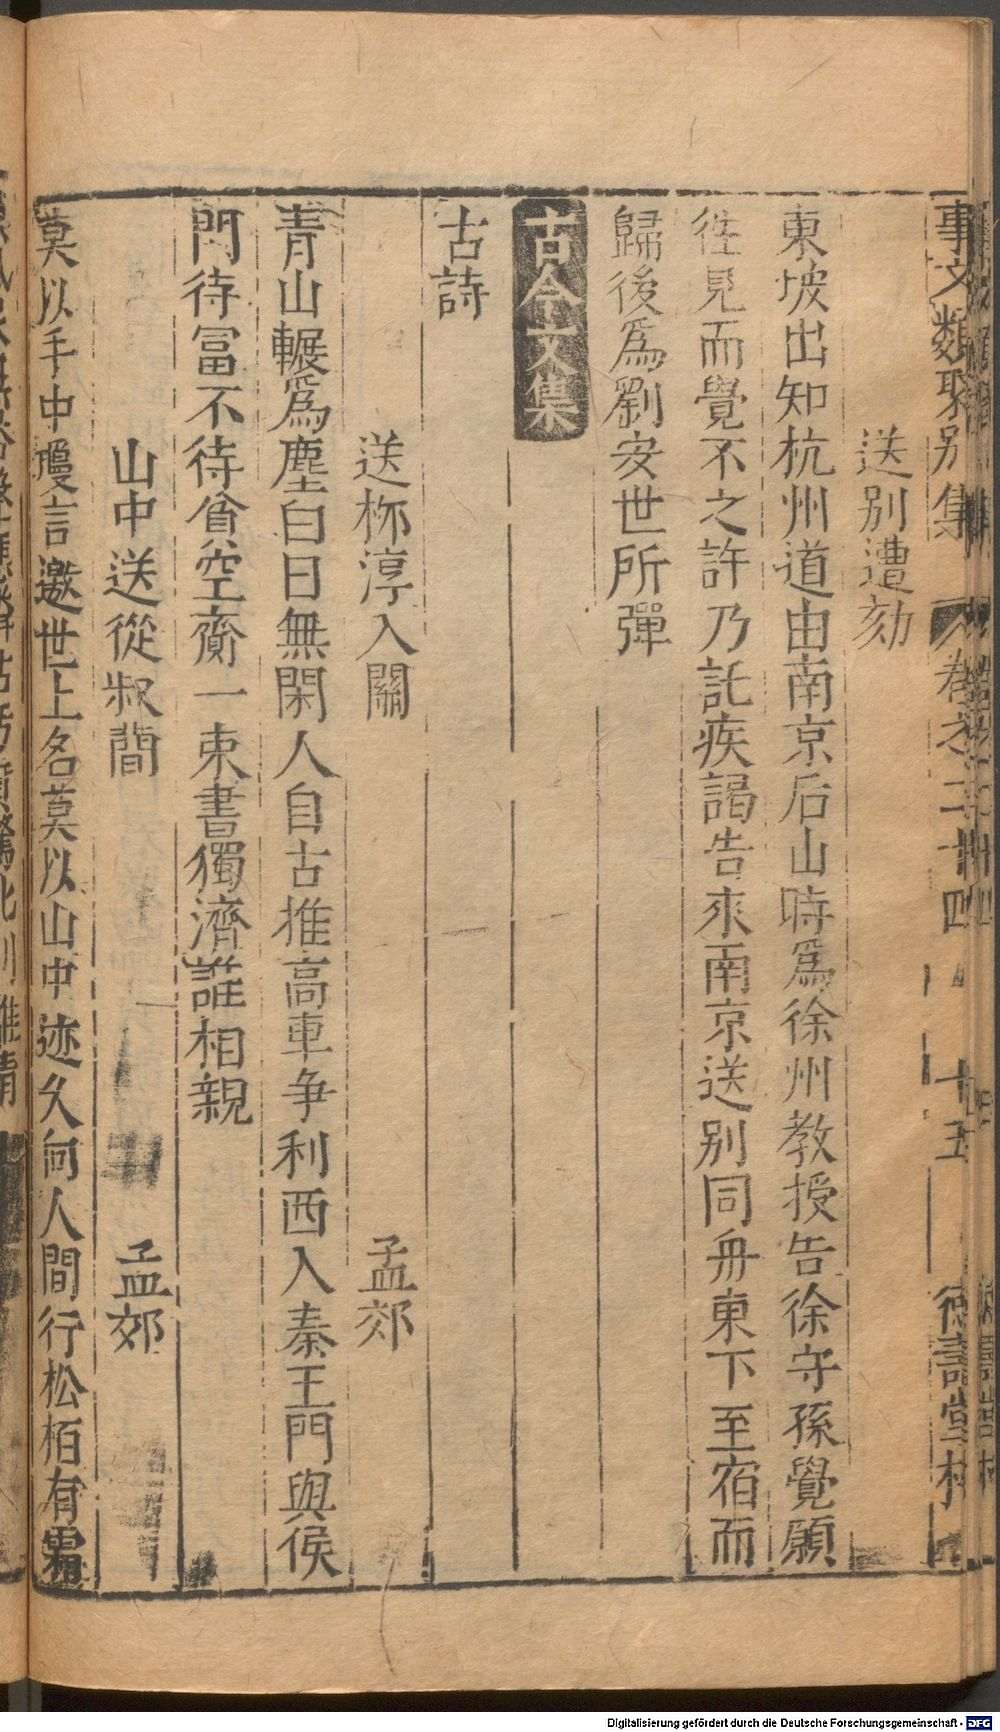 事文類聚別集 卷之二十四 十五 德壽堂梓
送別遭劾
東坡出知杭州道由南京后山時爲徐州教授告徐守孫覺願
徃見而覺不之許乃託疾謁告來南京送別同舟東下至宿而
歸後爲劉安世所彈
古今文集
古詩
送柳淳入關 孟郊
青山輾爲塵白日無閑人自古推高車争利西入秦王門與侯
門待冨不待貧空齎一束書獨濟誰相親
山中送從叔簡 孟郊
莫以手中瓊言邀世上名莫以山中迹久向人間行松栢有霜
Digitalisierung gefördert durch die Deutsche Forschungsgemeinschaft - DFG